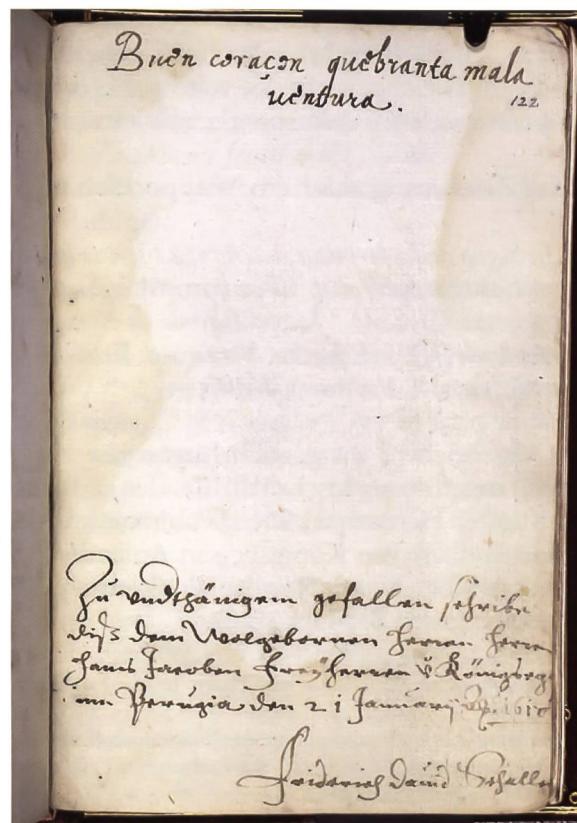 Buen coraçon quebranta mala
uentura.
122
Zu vndthänigem gefallen schribe
diß dem Wolgebornen herren herren
hans Jacoben freyherren v̈ Königsegg
inn Perugia den 21 January Aº. 1610
Friderich Dauid Schaller